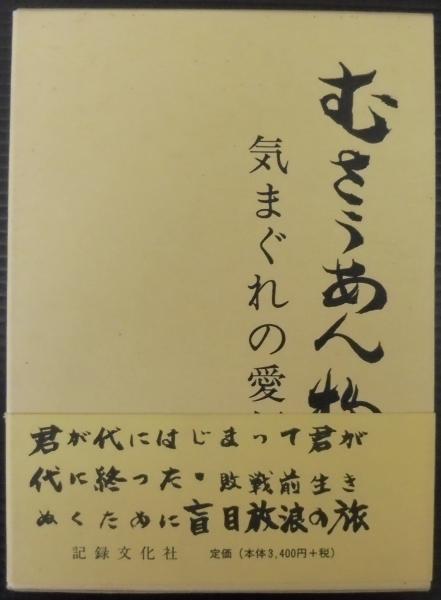 むさうあん物
気まぐれの愛
君が代にはじまって君が
代に終った・敗戦前生き
ぬくために盲目放浪の旅
記録文化社 定価（本体3,400円＋税）